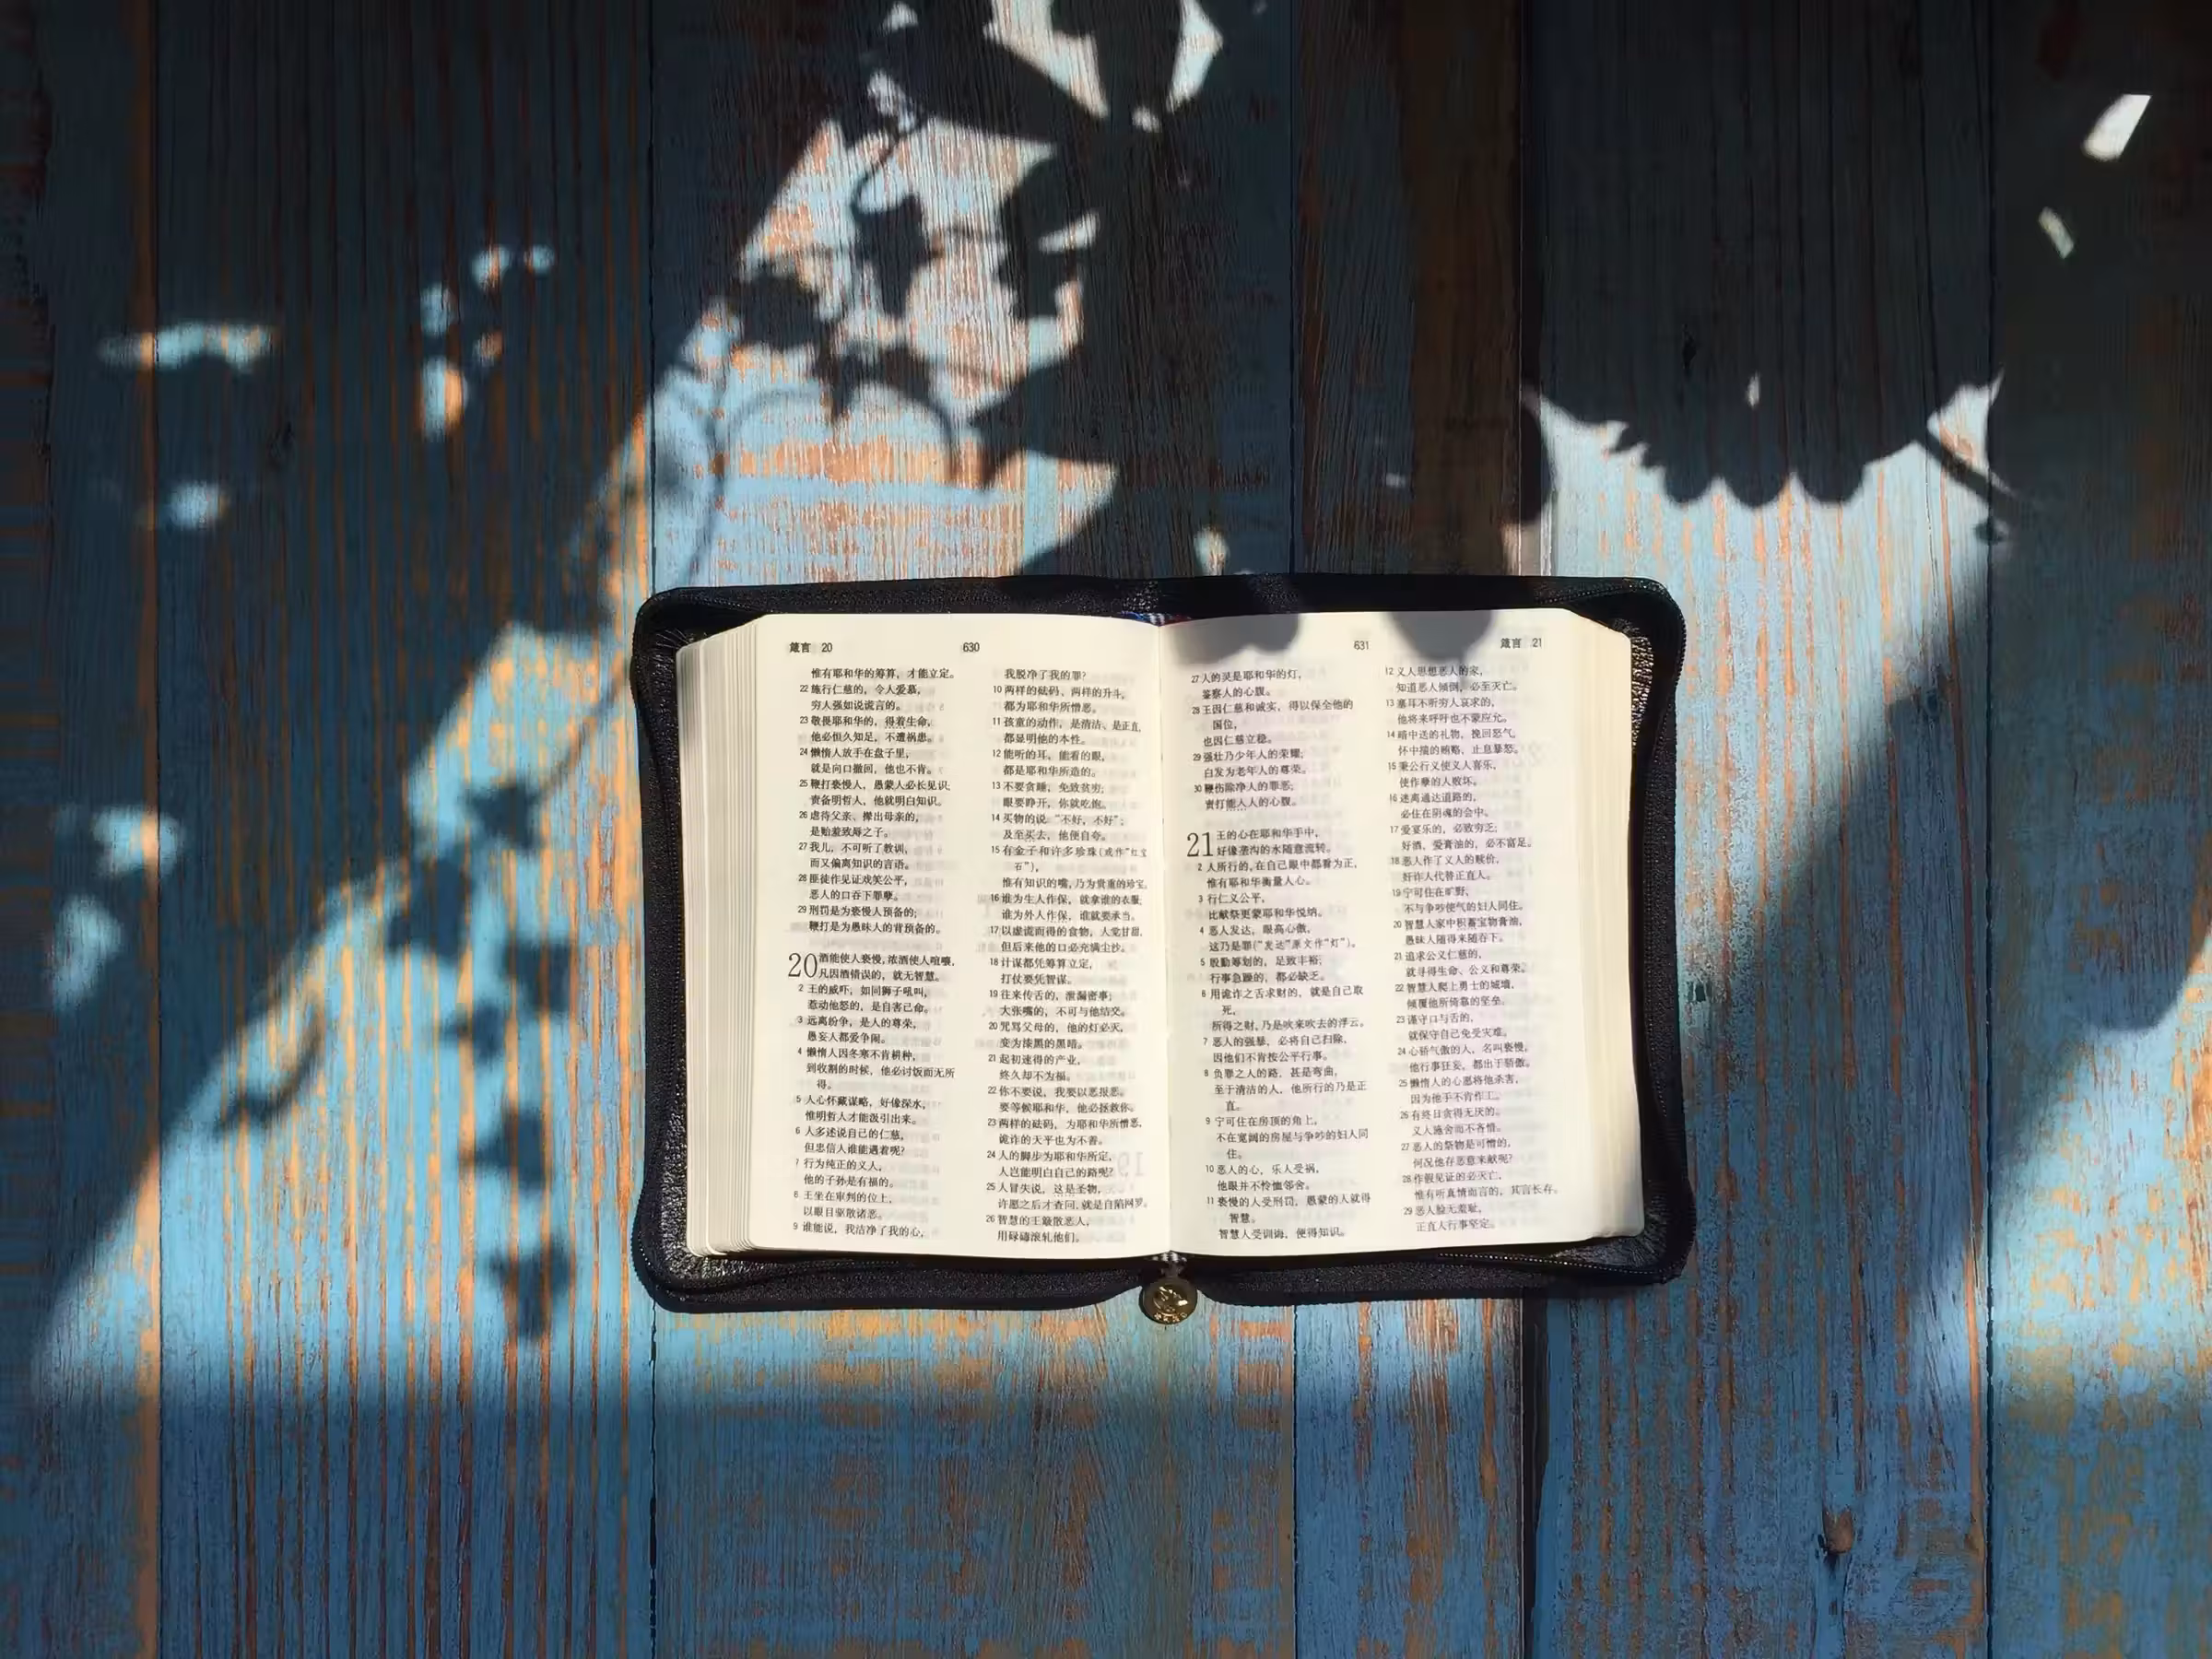 箴言 20
630
惟有耶和华的筹算，才能立定。
22 施行仁慈的，令人爱慕，
穷人强如说谎言的。
23 敬畏耶和华的，得着生命，
他必恒久知足，不遭祸患。
24 懒惰人放手在盘子里，
就是向口撤回，他也不肯。
25 鞭打亵慢人，愚蒙人必长见识；
责备明哲人，他就明白知识。
26 虐待父亲、撵出母亲的，
是贻羞致辱之子。
27 我儿，不可听了教训，
而又偏离知识的言语。
28 匪徒作见证戏笑公平，
恶人的口吞下罪孽。
29 刑罚是为亵慢人预备的；
鞭打是为愚昧人的背预备的。
20 酒能使人亵慢，浓酒使人喧嚷，
凡因酒错误的，就无智慧。
2 王的威吓，如同狮子吼叫，
惹动他怒的，是自害己命。
3 远离纷争，是人的尊荣，
愚妄人都爱争闹。
4 懒惰人因冬寒不肯耕种，
到收割的时候，他必讨饭而无所
得。
5 人心怀藏谋略，好像深水，
惟明哲人才能汲引出来。
6 人多述说自己的仁慈，
但忠信人谁能遇着呢？
7 行为纯正的义人，
他的子孙是有福的。
8 王坐在审判的位上，
以眼目驱散诸恶。
9 谁能说，我洁净了我的心，
我脱净了我的罪？
10 两样的砝码、两样的升斗，
都为耶和华所憎恶。
11 孩童的动作，是清洁、是正直，
都显明他的本性。
12 能听的耳，能看的眼，
都是耶和华所造的。
13 不要贪睡，免致贫穷；
眼要睁开，你就吃饱。
14 买物的说：“不好，不好”；
及至买去，他便自夸。
15 有金子和许多珍珠(或作“红宝
石”)，
惟有知识的嘴，乃为贵重的珍宝。
16 谁为生人作保，就拿谁的衣服；
谁为外人作保，谁就要承当。
17 以虚谎而得的食物，人觉甘甜，
但后来他的口必充满尘沙。
18 计谋都凭筹算立定，
打仗要凭智谋。
19 往来传舌的，泄漏密事；
大张嘴的，不可与他结交。
20 咒骂父母的，他的灯必灭，
变为漆黑的黑暗。
21 起初速得的产业，
终久却不为福。
22 你不要说，我要以恶报恶。
要等候耶和华，他必拯救你。
23 两样的砝码，为耶和华所憎恶，
诡诈的天平也为不善。
24 人的脚步为耶和华所定，
人岂能明白自己的路呢？
25 人冒失说，这是圣物，
许愿之后才查问，就是自陷网罗。
26 智慧的王簸散恶人，
用碌碡滚轧他们。
631
箴言 21
27 人的灵是耶和华的灯，
鉴察人的心腹。
28 王因仁慈和诚实，得以保全他的
国位，
也因仁慈立稳。
29 强壮乃少年人的荣耀；
白发为老年人的尊荣。
30 鞭伤除净人的罪恶；
责打能入人的心腹。
21 王的心在耶和华手中，
好像垄沟的水随意流转。
2 人所行的，在自己眼中都看为正，
惟有耶和华衡量人心。
3 行仁义公平，
比献祭更蒙耶和华悦纳。
4 恶人发达，眼高心傲，
这乃是罪(“发达”原文作“灯”)。
5 殷勤筹划的，足致丰裕；
行事急躁的，都必缺乏。
6 用诡诈之舌求财的，就是自己取
死，
所得之财，乃是吹来吹去的浮云。
7 恶人的强暴，必将自己扫除，
因他们不肯按公平行事。
8 负罪之人的路，甚是弯曲，
至于清洁的人，他所行的乃是正
直。
9 宁可住在房顶的角上，
不在宽阔的房屋与争吵的妇人同
住。
10 恶人的心，乐人受祸，
他眼并不怜恤邻舍。
11 亵慢的人受刑罚，愚蒙的人就得
智慧。
智慧人受训诲，便得知识。
12 义人思想恶人的家，
知道恶人倾倒，必至灭亡。
13 塞耳不听穷人哀求的，
他将来呼吁也不蒙应允。
14 暗中送的礼物，挽回怒气，
怀中搋的贿赂，止息暴怒。
15 秉公行义使义人喜乐，
使作孽的人败坏。
16 迷离通达道路的，
必住在阴魂的会中。
17 爱宴乐的，必致穷乏；
好酒、爱膏油的，必不富足。
18 恶人作了义人的赎价，
奸诈人代替正直人。
19 宁可住在旷野，
不与争吵使气的妇人同住。
20 智慧人家中积蓄宝物膏油，
愚昧人随得来随吞下。
21 追求公义仁慈的，
就寻得生命、公义和尊荣。
22 智慧人爬上勇士的城墙，
倾覆他所倚靠的坚垒。
23 谨守口与舌的，
就保守自己免受灾难。
24 心骄气傲的人，名叫亵慢，
他行事狂妄，都出于骄傲。
25 懒惰人的心愿将他杀害，
因为他手不肯作工。
26 有终日贪得无厌的。
义人施舍而不吝惜。
27 恶人的祭物是可憎的，
何况他存恶意来献呢？
28 作假见证的必灭亡，
惟有听真情而言的，其言长存。
29 恶人脸无羞耻，
正直人行事坚定。